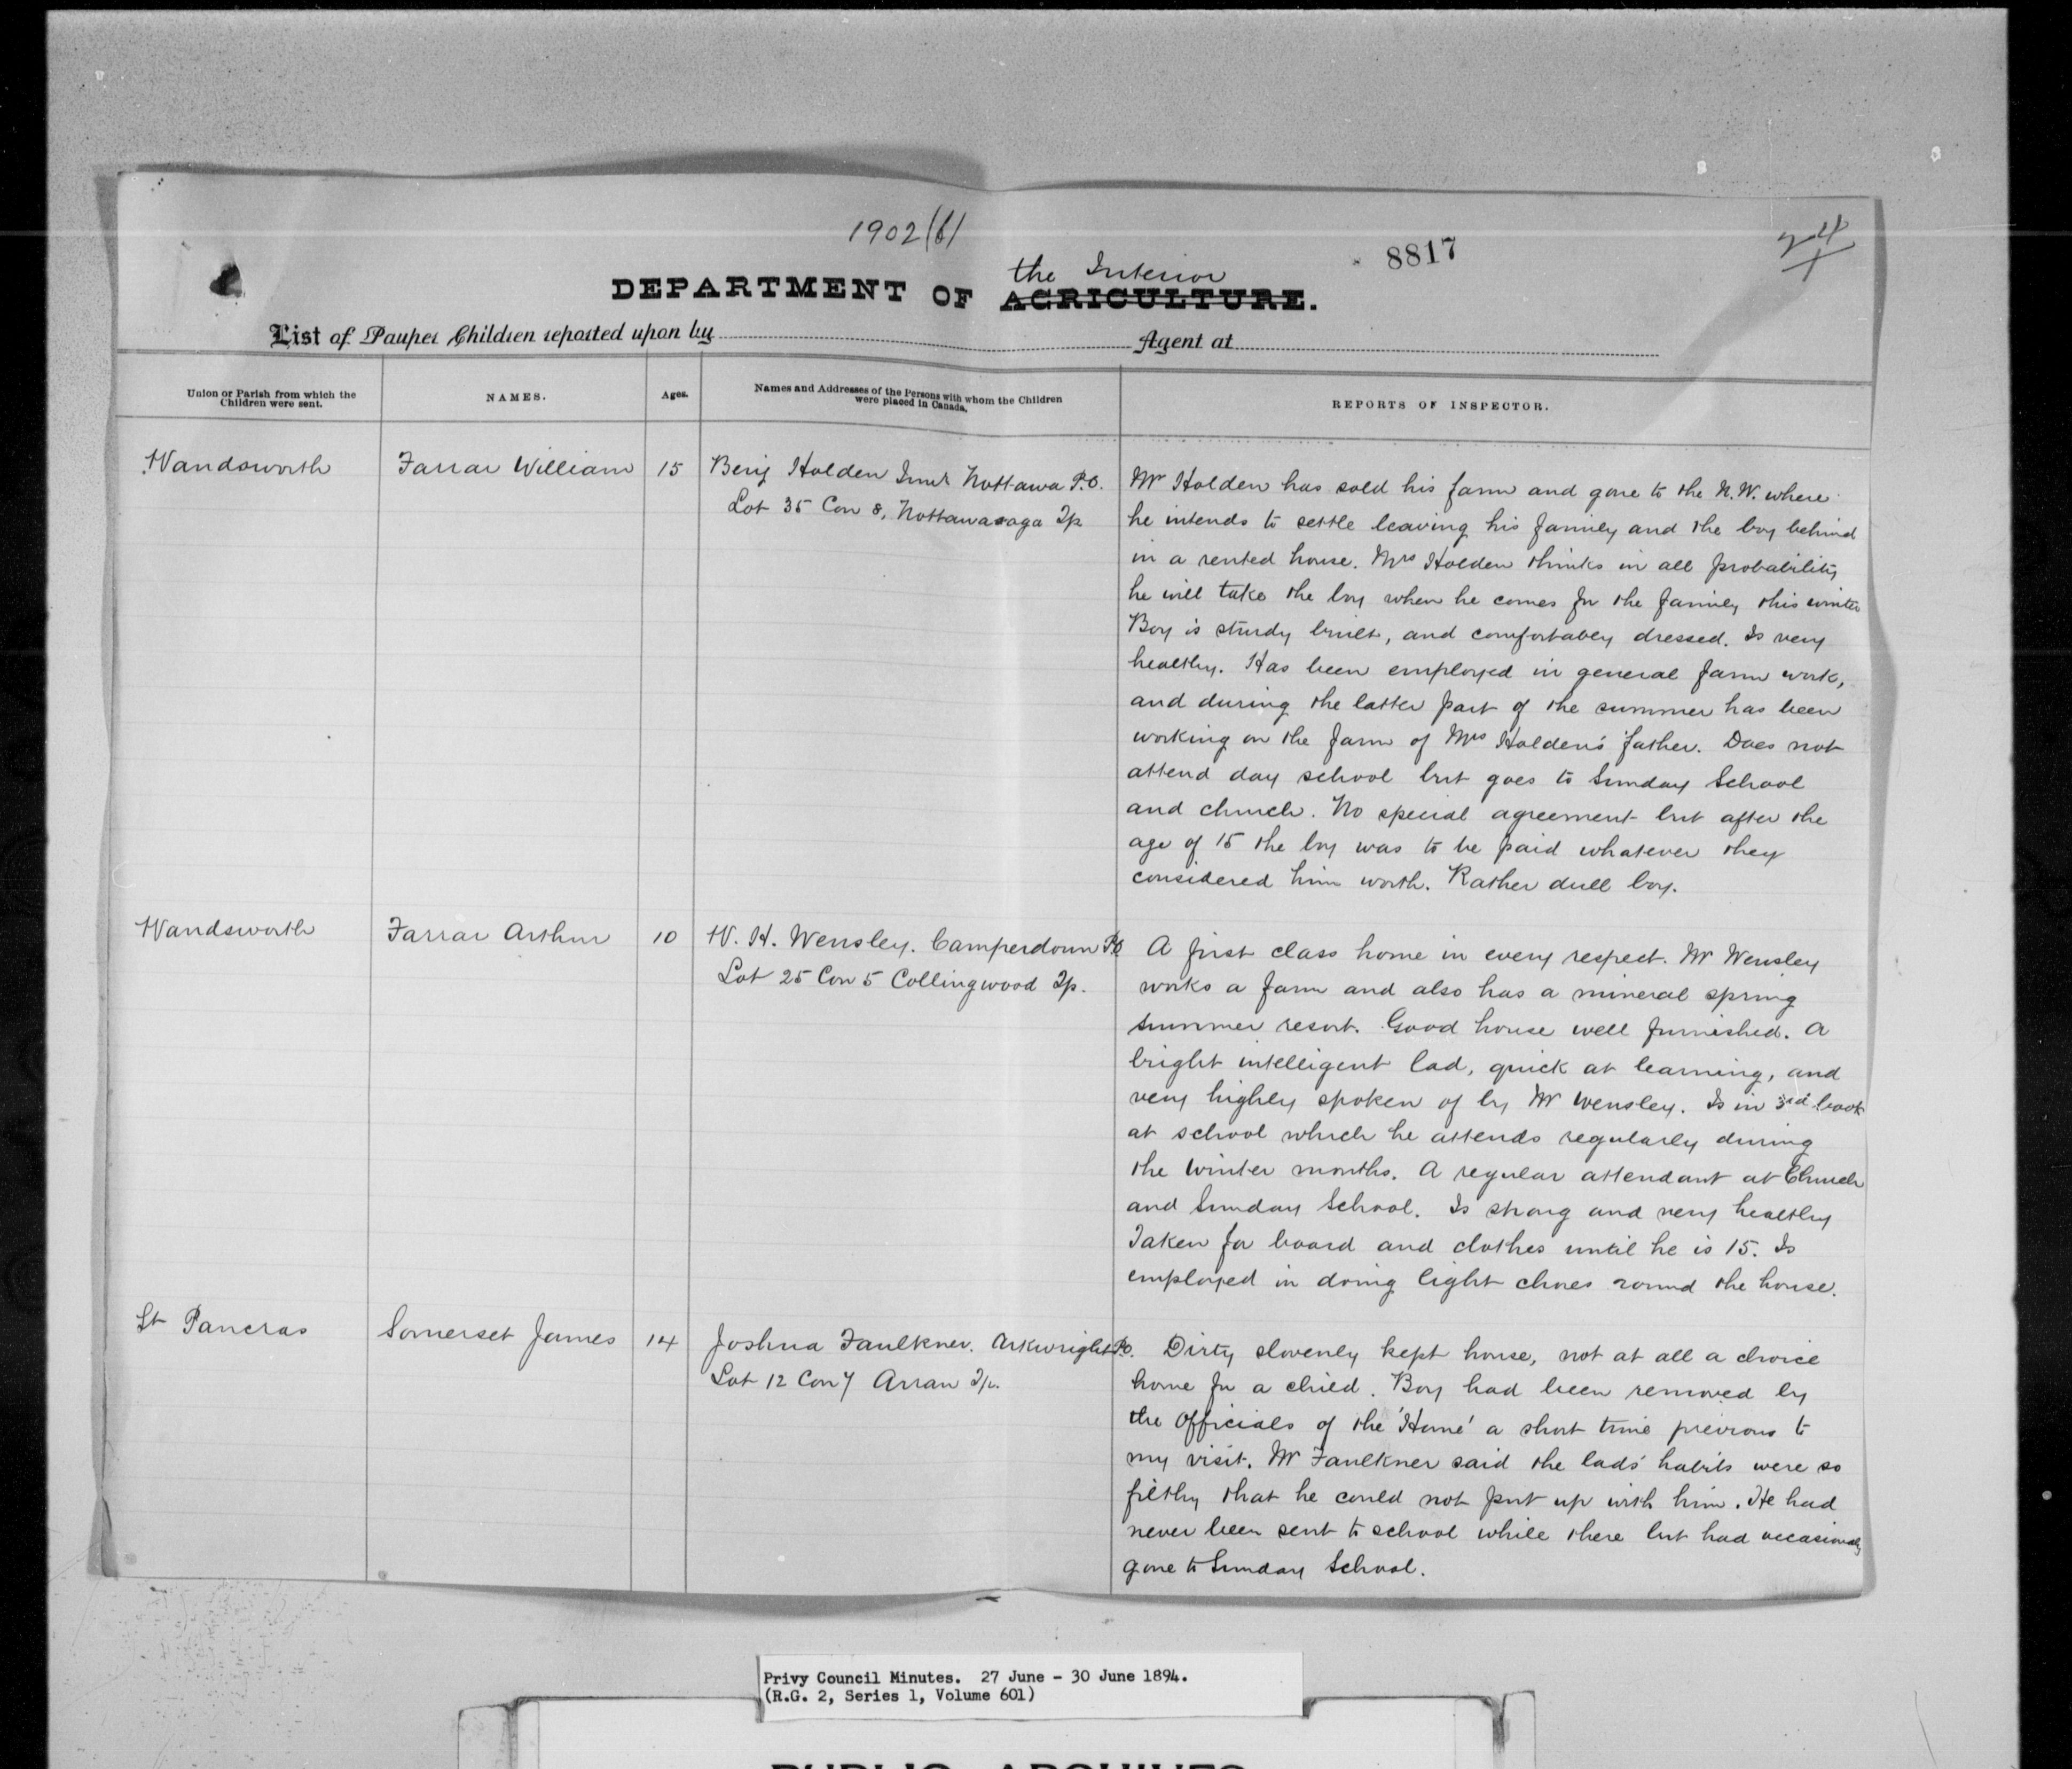 1902(b)
8817
24
DEPARTMENT OF AGRICULTURE.
the Interior
List of Pauper Children reported upon by Agent at
Union or Parish from which the
Children were sent.
NAMES.
Ages.
Names and Addresses of the Persons with whom the Children
were placed in Canada.
REPORTS OF INSPECTOR.
Wandsworth
Farrar William
15
Benj Holden Nottawa P.O.
Lot 35 Con 8, Nottawasaga Tp
Mr Holden has sold his farm and gone to the N.W. where
he intends to settle leaving his family and the boy behind
in a rented house. Mrs Holden thinks in all probability
he will take the boy when he comes for the family this winter
Boy is sturdy built, and comfortably dressed. Is very
healthy. Has been employed in general farm work,
and during the latter part of the summer has been
working on the farm of Mrs Holden's father. Does not
attend day school but goes to Sunday School
and church. No special agreement but after the
age of 15 the boy was to be paid whatever they
considered him worth. Rather dull boy.
Wandsworth
Farrar Arthur
10
W. H. Wensley. Camperdown PO
Lot 25 Con 5 Collingwood Tp.
A first class home in every respect. Mr Wensley
works a farm and also has a mineral spring
summer resort. Good house well furnished. A
bright intelligent lad, quick at learning, and
very highly spoken of by Mr Wensley. Is in 3rd book
at school which he attends regularly during
the winter months. A regular attendant at Church
and Sunday School. Is strong and very healthy
Taken for board and clothes until he is 15. Is
employed in doing light chores round the house.
St Pancras
Somerset James
14
Joshua Faulkner. Arkwright P.O.
Lot 12 Con 7 Arran Tp.
Dirty slovenly kept house, not at all a choice
home for a child. Boy had been removed by
the officials of the 'Home' a short time previous to
my visit. Mr Faulkner said the lads' habits were so
filthy that he could not put up with him. He had
never been sent to school while there but had occasionally
gone to Sunday School.
Privy Council Minutes. 27 June - 30 June 1894.
(R.G. 2, Series 1, Volume 601)
PUBLIC ARCHIVES